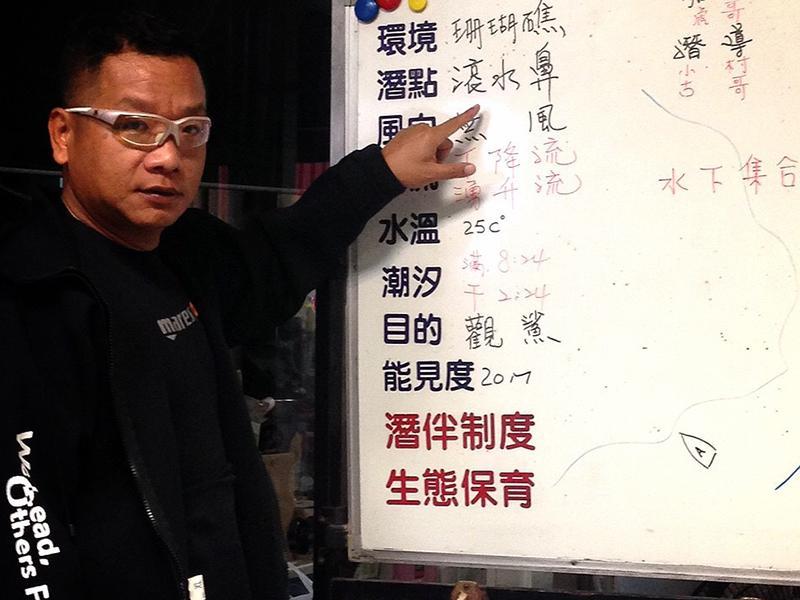 環境 珊瑚礁
潛點 滾水鼻
風向 無風
下降流
湧升流
水溫 25c°
潮汐 滿 8:24
干 2:24
目的 觀鯊
能見度 20M
潛伴制度
生態保育
哥
潛導
小古
村哥
水下集合
A
mares
ead,
Others F